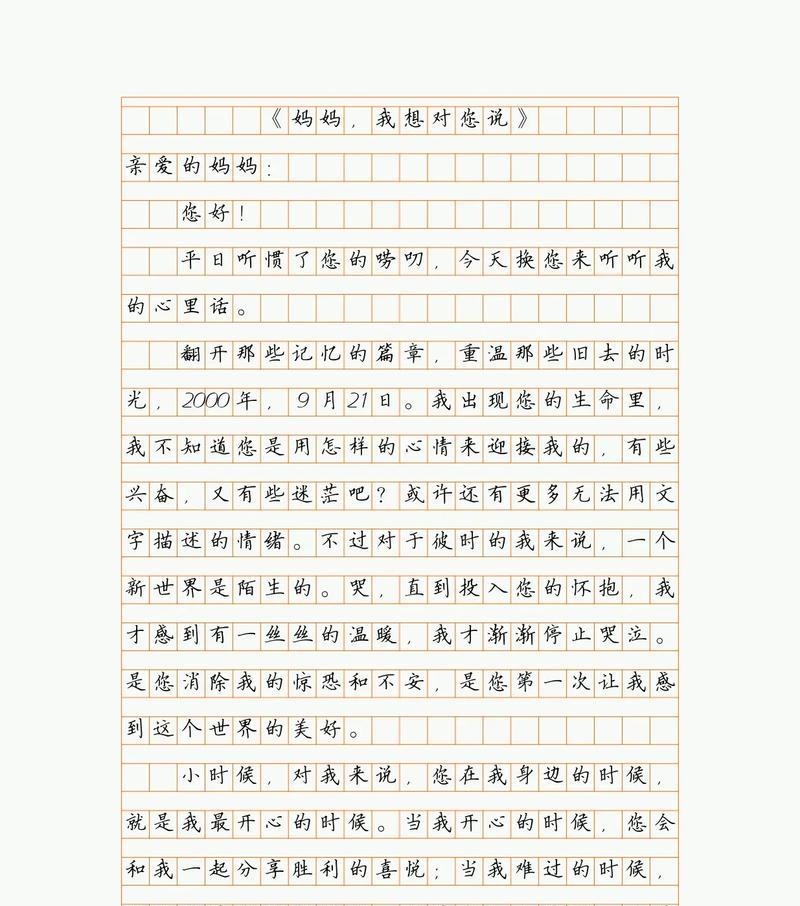 《妈妈，我想对您说》
亲爱的妈妈：
您好！
平日听惯了您的唠叨，今天换您来听听我
的心里话。
翻开那些记忆的篇章，重温那些旧去的时
光，2000年，9月21日。我出现您的生命里，
我不知道您是用怎样的心情来迎接我的，有些
兴奋，又有些迷茫吧？或许还有更多无法用文
字描述的情绪。不过对于彼时的我来说，一个
新世界是陌生的。哭，直到投入您的怀抱，我
才感到有一丝丝的温暖，我才渐渐停止哭泣。
是您消除我的惊恐和不安，是您第一次让我感
到这个世界的美好。
小时候，对我来说，您在我身边的时候，
就是我最开心的时候。当我开心的时候，您会
和我一起分享胜利的喜悦；当我难过的时候，